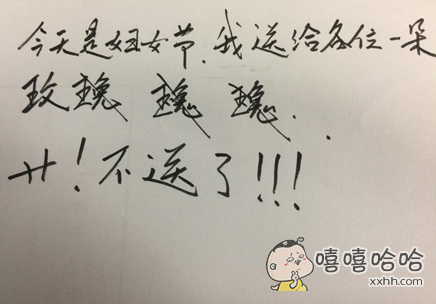 今天是妇女节，我送给各位一朵
玫瑰 瑰 瑰...
艹！不送了！！！
嘻嘻哈哈
xxhh.com